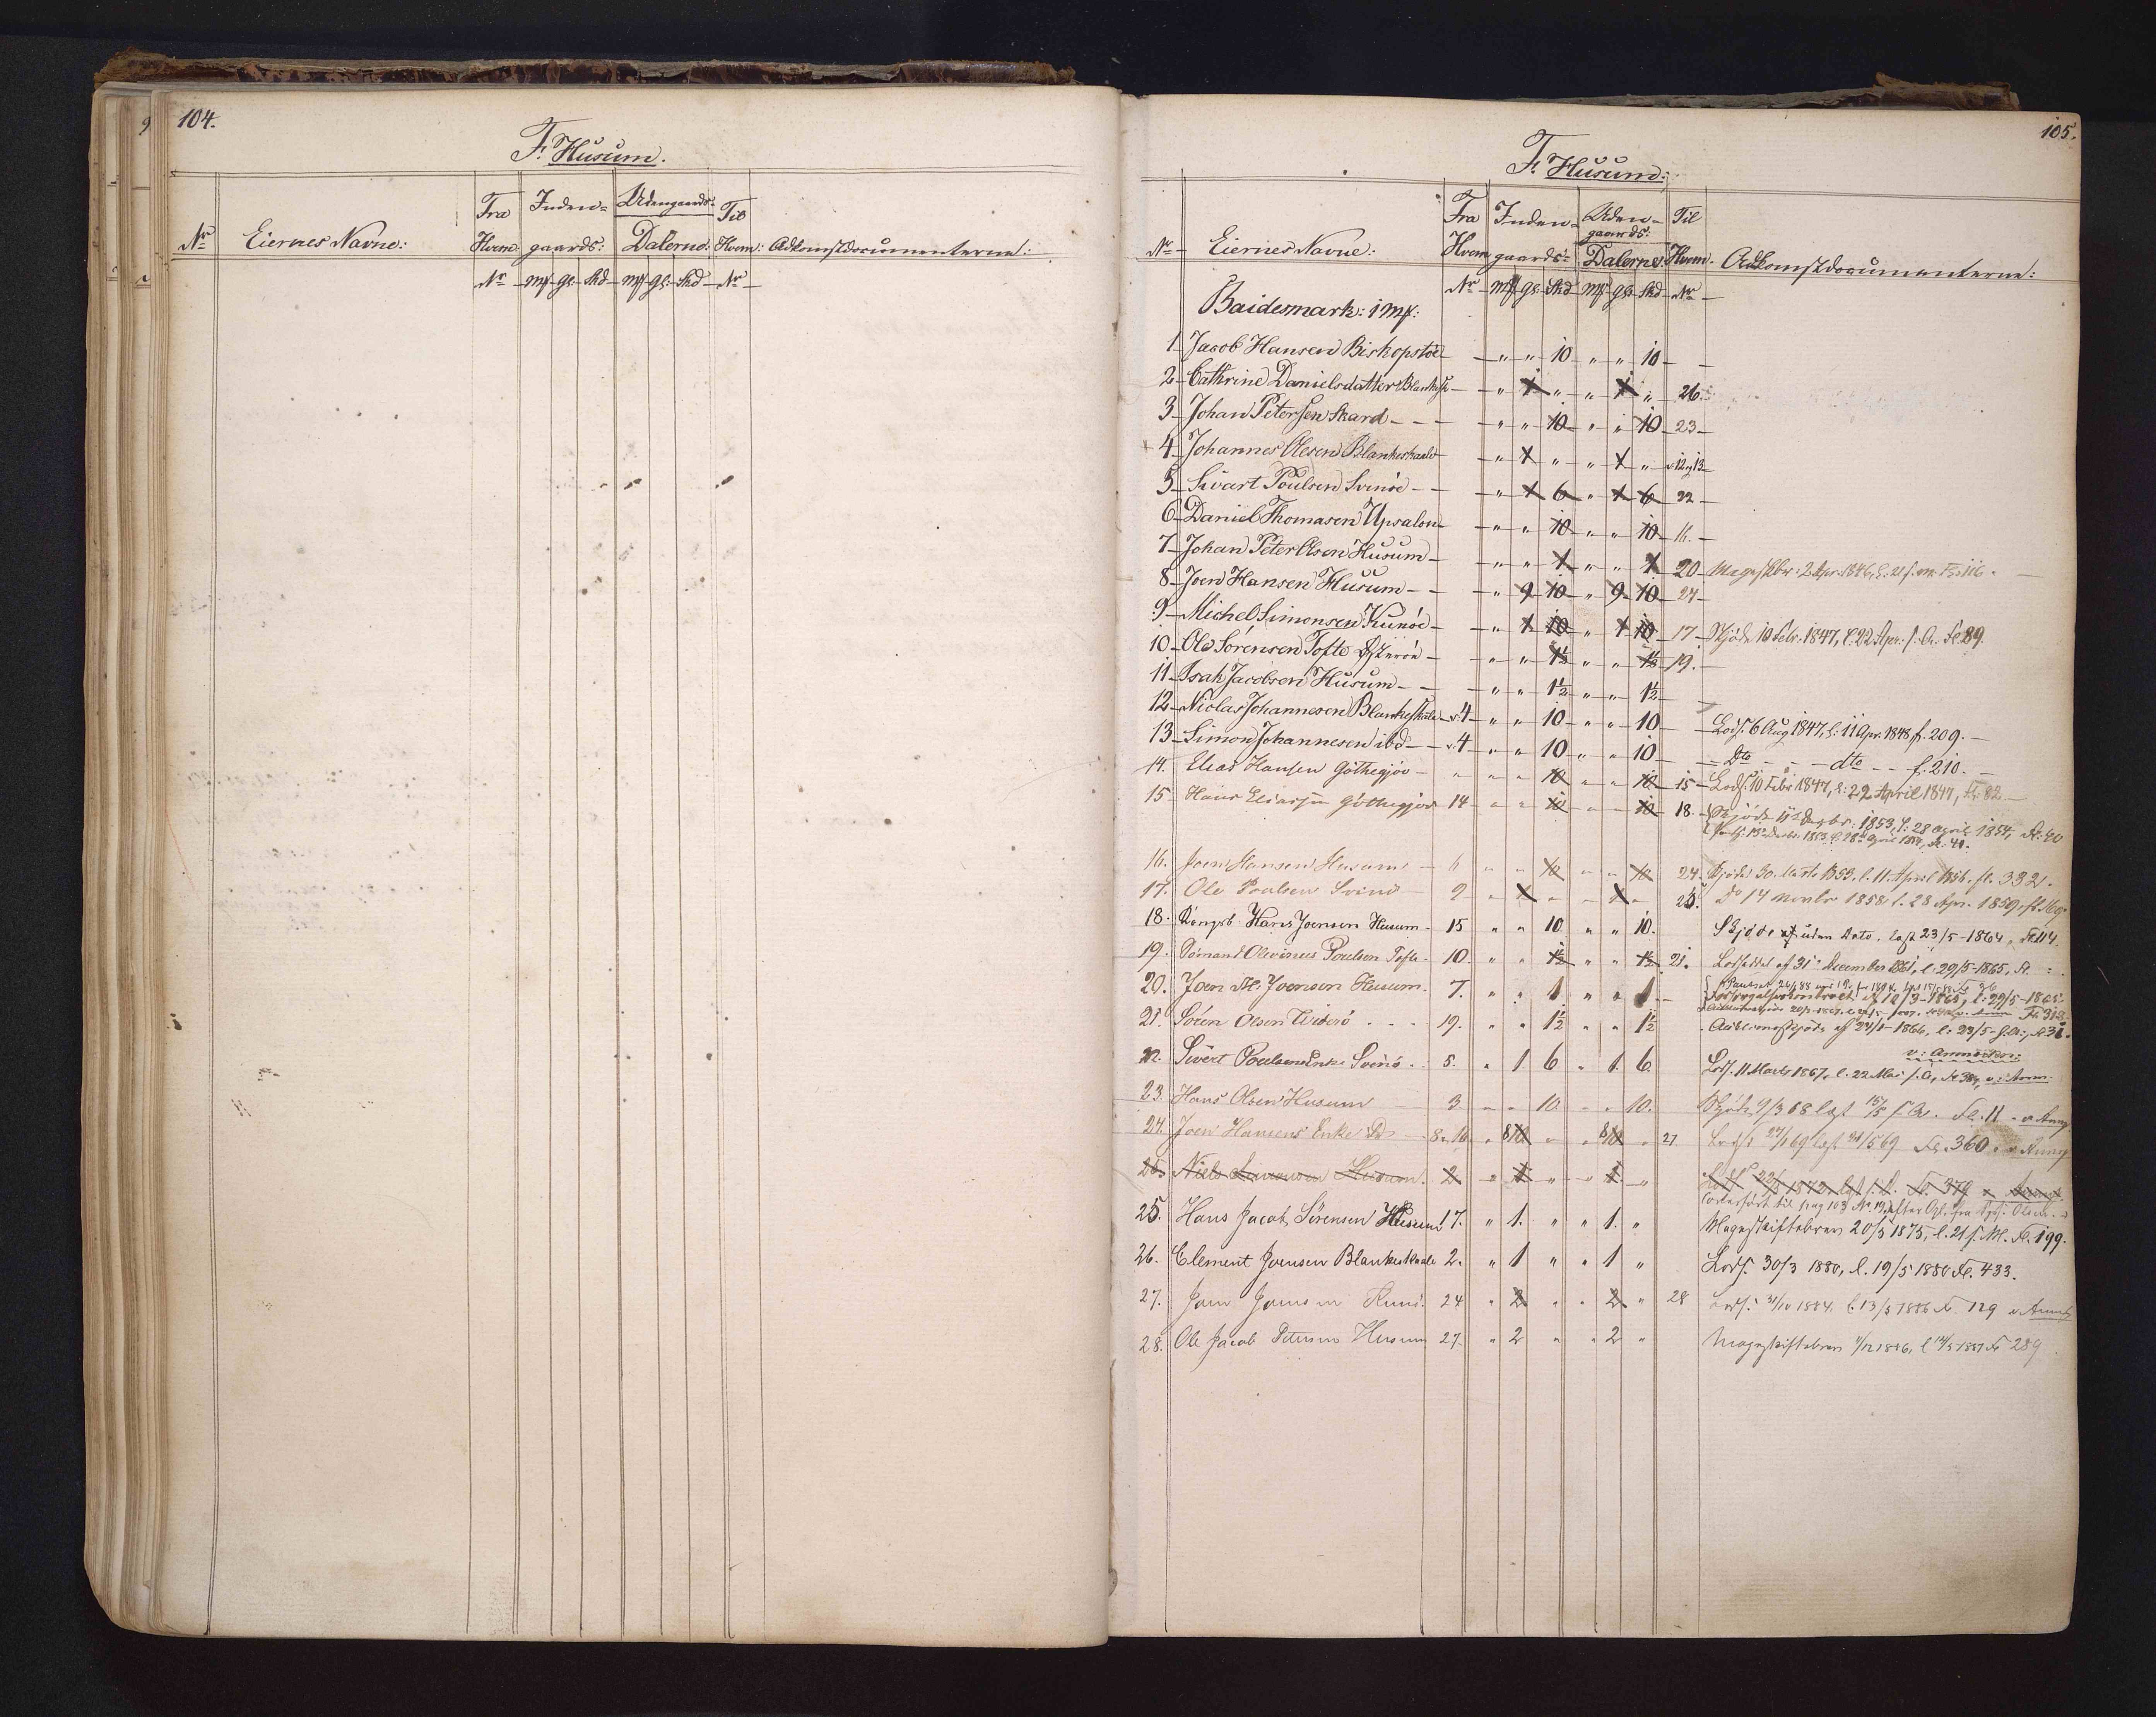 104.
F. Husum.
Nr Eiernes Navne: Fra Hvem: Inden-gaards: Udengaards: Dalerne: Til Hvem: Adkomstdocumenterne:
Nr Mk gl: Skd Mk gl: Skd Nr
105.
F. Husum:
Nr Eiernes Navne: Fra Hvem Inden-gaards: Uden-gaards: Dalerne: Til Hvem. Adkomstdocumenterne:
Nr Mk gl: Skd Mk gl: Skd Nr
Baidesmark: 1 Mk:
1 Jacob Hansen Biskopstöe " " 10 " " 10
2 Cathrine Danielsdatter Blankesk " 1 " " 1 " 26.
3 Johan Petersen Skard " " 10 " " 10 23
4 Johannes Olesen Blankeskaale " 1 " " 1 " 12 og 13
5 Sivart Poulsen Svinöe " 1 6 " 1 6 22
6 Daniel Thomasen Upsalon " " 10 " " 10 16.
7 Johan Peter Olsen Husum " " 1 " " 1 20 Mageskbr: 2 Apr. 1846, l: 21 f. m. Fo 116.
8 Joen Hansen Husum " 9 10 " 9 10 24
9 Michel Simonsen Kunöe " 1 10 " 1 10 17 Skjöde 10 Febr. 1847, l: 22 Apr. s. A. Fl. 89.
10 Ole Sörensen Tofte Österöe " " 1½ " " 1½ 19.
11 Isak Jacobsen Husum " " 1½ " " 1½
12 Niclas Johannesen Blankeskale v. 4 " " 10 " " 10 Lods. 6 Aug 1847, l: 11 Apr. 1848, f. 209.
13 Simon Johannesen ibd v. 4 " " 10 " " 10 Dto dto f: 210.
14. Elias Hansen Göthegjov " " 10 " " 10 15 Lods. 10 Febr 1847, l: 22 April 1847, Fl. 82
15 Hans Eliassen Göthegjov 14 " " 10 " " 10 18. Skjöde 1853, l: 28 April 1854, Fl. 40
1853, l. 28 April 1854, Fl. 41.
16. Joen Hansen Husum 6 " " 10 " " 10 24. Skjöde 30. Marts 1853, l. 11. April 1856, fl. 332.
17. Ole Poulsen Svinö 9 " 1 " " 1 " 25. Do 14 Novbr 1858, l. 28 Apr. 1859,
18. Kongsb. Hans Joensen Husum 15 " " 10 " " 10. Skjöde uden Dato, læst 23/5-1864, Fl. 114.
19. Sömand Olevinus Poulsen Tofte 10. " " 1½ " " 1½ 21. Lodseddel af 31te December 1861, l: 29/5-1865, Fl.
20. Joen M. Joensen Husum. 7. " " 1 " " 1 af 10/3-1865, l: 29/5-1865
21. Sören Olsen Viderö 19. " " 1½ " " 1½ af 24/1 1866, l: 23/5
v: Anmærkn:
22. Sivert Poulsens Enke Svinö 5. " 1 6 " 1. 6. Lods. 11 Marts 1867, l. 22 Mai s. A, Fl. 384, v: Anm:
23. Hans Olsen Husum 3 " " 10 " " 10. Skjöde 9/3 68 læst 15/5 s. A. Fl. 11 v Anm
24. Joen Hansens Enke Do 8 og 16 " 8 10 " " 8 10 " 27 Lods. 27/1 69 læst 21/5 69 Fl. 360 v. Anm
25. Niels Husum. 2 " 1 " " 1 " Lods. 22/5 1872, læst s. A. Fl. 379 v Anm.
Overført til pag 103 Nr. 19, efter
25. Hans Jacob Sörensen Husum 17. " 1. " " 1. " Mageskiftebrev 20/5 1875, l. 21 s. M. Fl. 199.
26. Clement Joensen Blankeskaale 2. " 1 " " 1 " Lods. 30/3 1880, l. 19/5 1880 Fl. 433.
27. Joen Joensen Kunö. 24 " 2 " " 2 " 28 Lods. 31/10 1884, l. 13/5 1886 Fl. 129 v. Anm
28. Ole Jacob Petersen Husum 27. " 2 " " 2 " Mageskiftebrev 1/12 1886, l 14/5 1887 Fl 289.